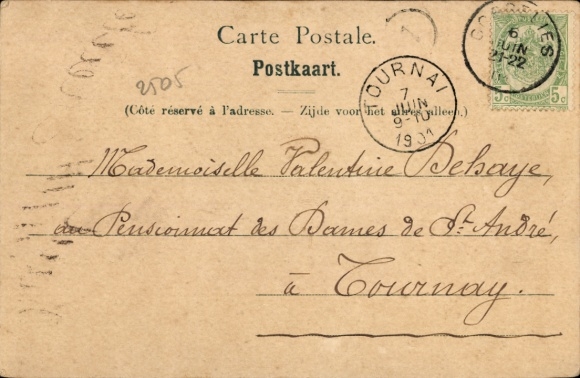 Carte Postale.
Postkaart.
2505
(Côté réservé à l'adresse. — Zijde voor het adres alleen.)
TOURNAI
7
JUIN
9-10
1901
6
JUIN
21-22
5c 5c
Mademoiselle Valentine Dehaye,
au Pensionnat des Dames de St. André,
à Tournay.